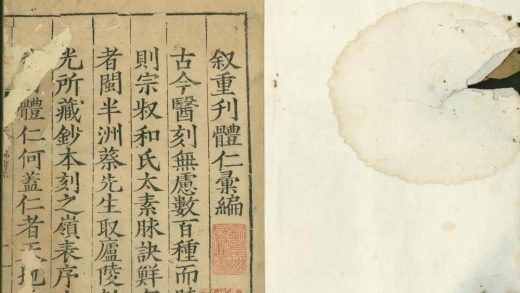 叙重刊體仁彙編
古今醫刻無慮數百種而
則宗叔和氏太素脉訣鮮
者閩半洲蔡先生取廬陵
光所藏鈔本刻之嶺表序
體仁何蓋仁者天地